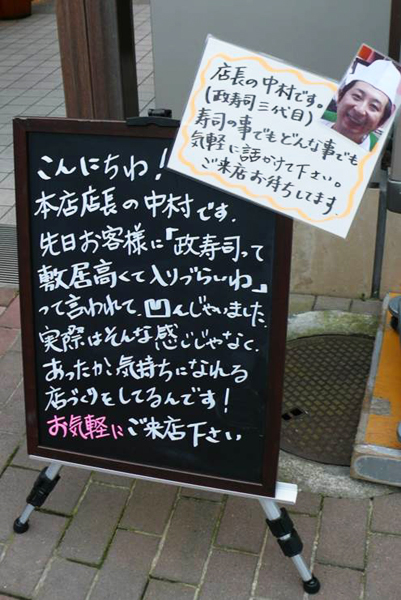 店長の中村です。
(政寿司三代目)
寿司の事でもどんな事でも
気軽に話かけて下さい。
ご来店お待ちしてます。
こんにちわ!
本店店長の中村です.
先日お客様に「政寿司って
敷居高くて入りづらいわ」
って言われて、凹んじゃいました.
実際はそんな感じじゃなく、
あったか〜気持ちになれる
店づくりをしてるんです!
お気軽にご来店下さい